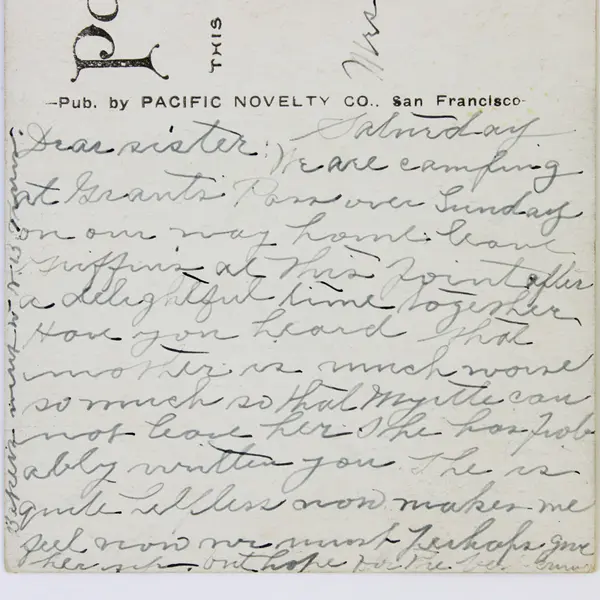 Po
THIS
Mrs
-Pub. by PACIFIC NOVELTY CO., San Francisco-
Saturday
Dear sister: We are camping
at Grants Pass over Sunday
on our way home leave
Griffins at this point after
a delightful time together
Have you heard that
mother is much worse
so much so that Myrtle can
not leave her. She has prob
ably written you. She is
quite helless now makes me
feel now we must perhaps give
her up. but hope for the best